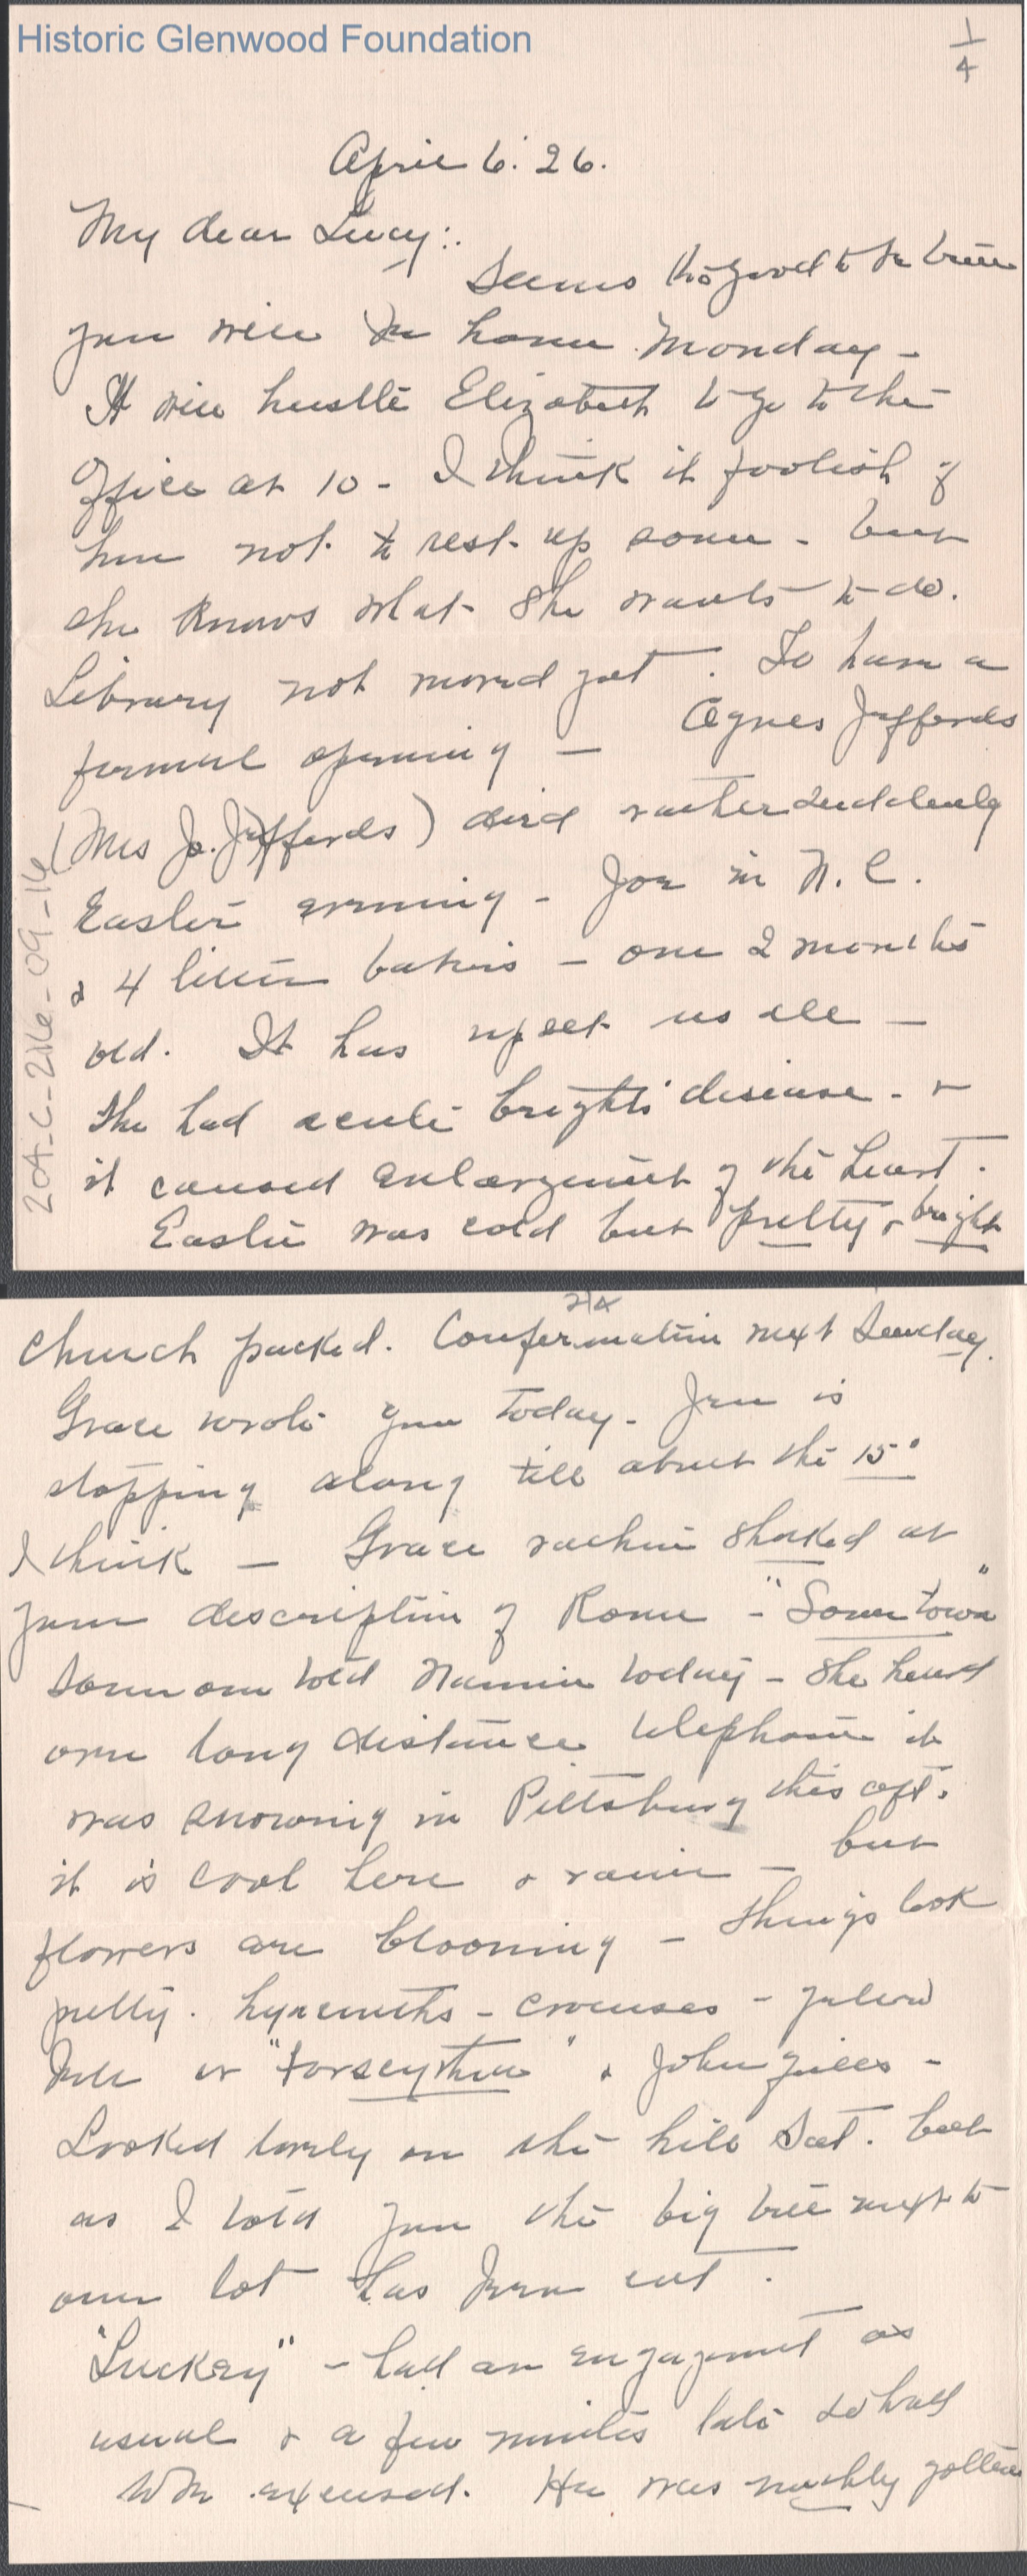 Historic Glenwood Foundation
1/4
April 6. 26.
My dear Lucy:.
Seems too good to be true
you will be home Monday -
It will hustle Elizabeth to go to the
office at 10 - I think it foolish of
her not to rest up some - but
she knows what she wants to do.
Library not moved yet. To have a
formal opening - Agnes Jaffords
(Mrs Jo. Jaffords) died rather suddenly
Easter evening - Joe in N. C.
& 4 little babies - one 2 months
old. It has upset us all -
She had acute brights disease - &
it caused enlargement of the heart.
Easter was cold but pretty & bright
20A-C-216-09-16
2/4
Church packed. Confermation next Sunday.
Grace wrote you today. Jen is
stopping along till about the 15"
I think - Grace rather shocked at
your description of Rome - "Some town"
Some one told Nannie today - she heard
over long distance telephone it
was snowing in Pittsburg this aft.
it is cool here & rain - but
flowers are blooming - things look
pretty. hyacinths - crocuses - yellow
bell or "forseythia" & John quills -
Looked lovely on the hill Sat. but
as I told you the big tree next to
our lot has been cut.
"Luckey" - had an engagement as
usual & a few minutes late so had
been excused. He was nuchly gotten